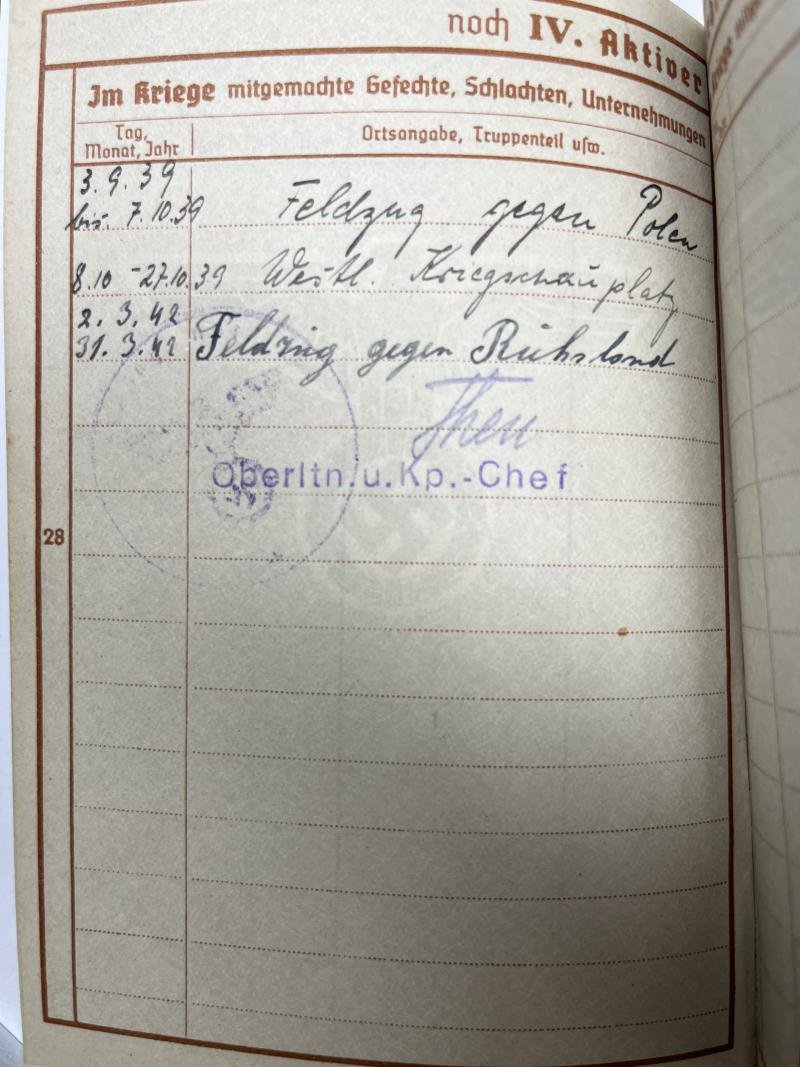 noch IV. Aktiver
Im Kriege mitgemachte Gefechte, Schlachten, Unternehmungen
Tag, Monat, Jahr
Ortsangabe, Truppenteil usw.
3.9.39
bis. 7.10.39 Feldzug gegen Polen
8.10 - 27.10.39 Westl. Kriegschauplatz
2.3.42
31.3.42 Feldzug gegen Ruhsland
Oberltn.u.Kp.-Chef
28